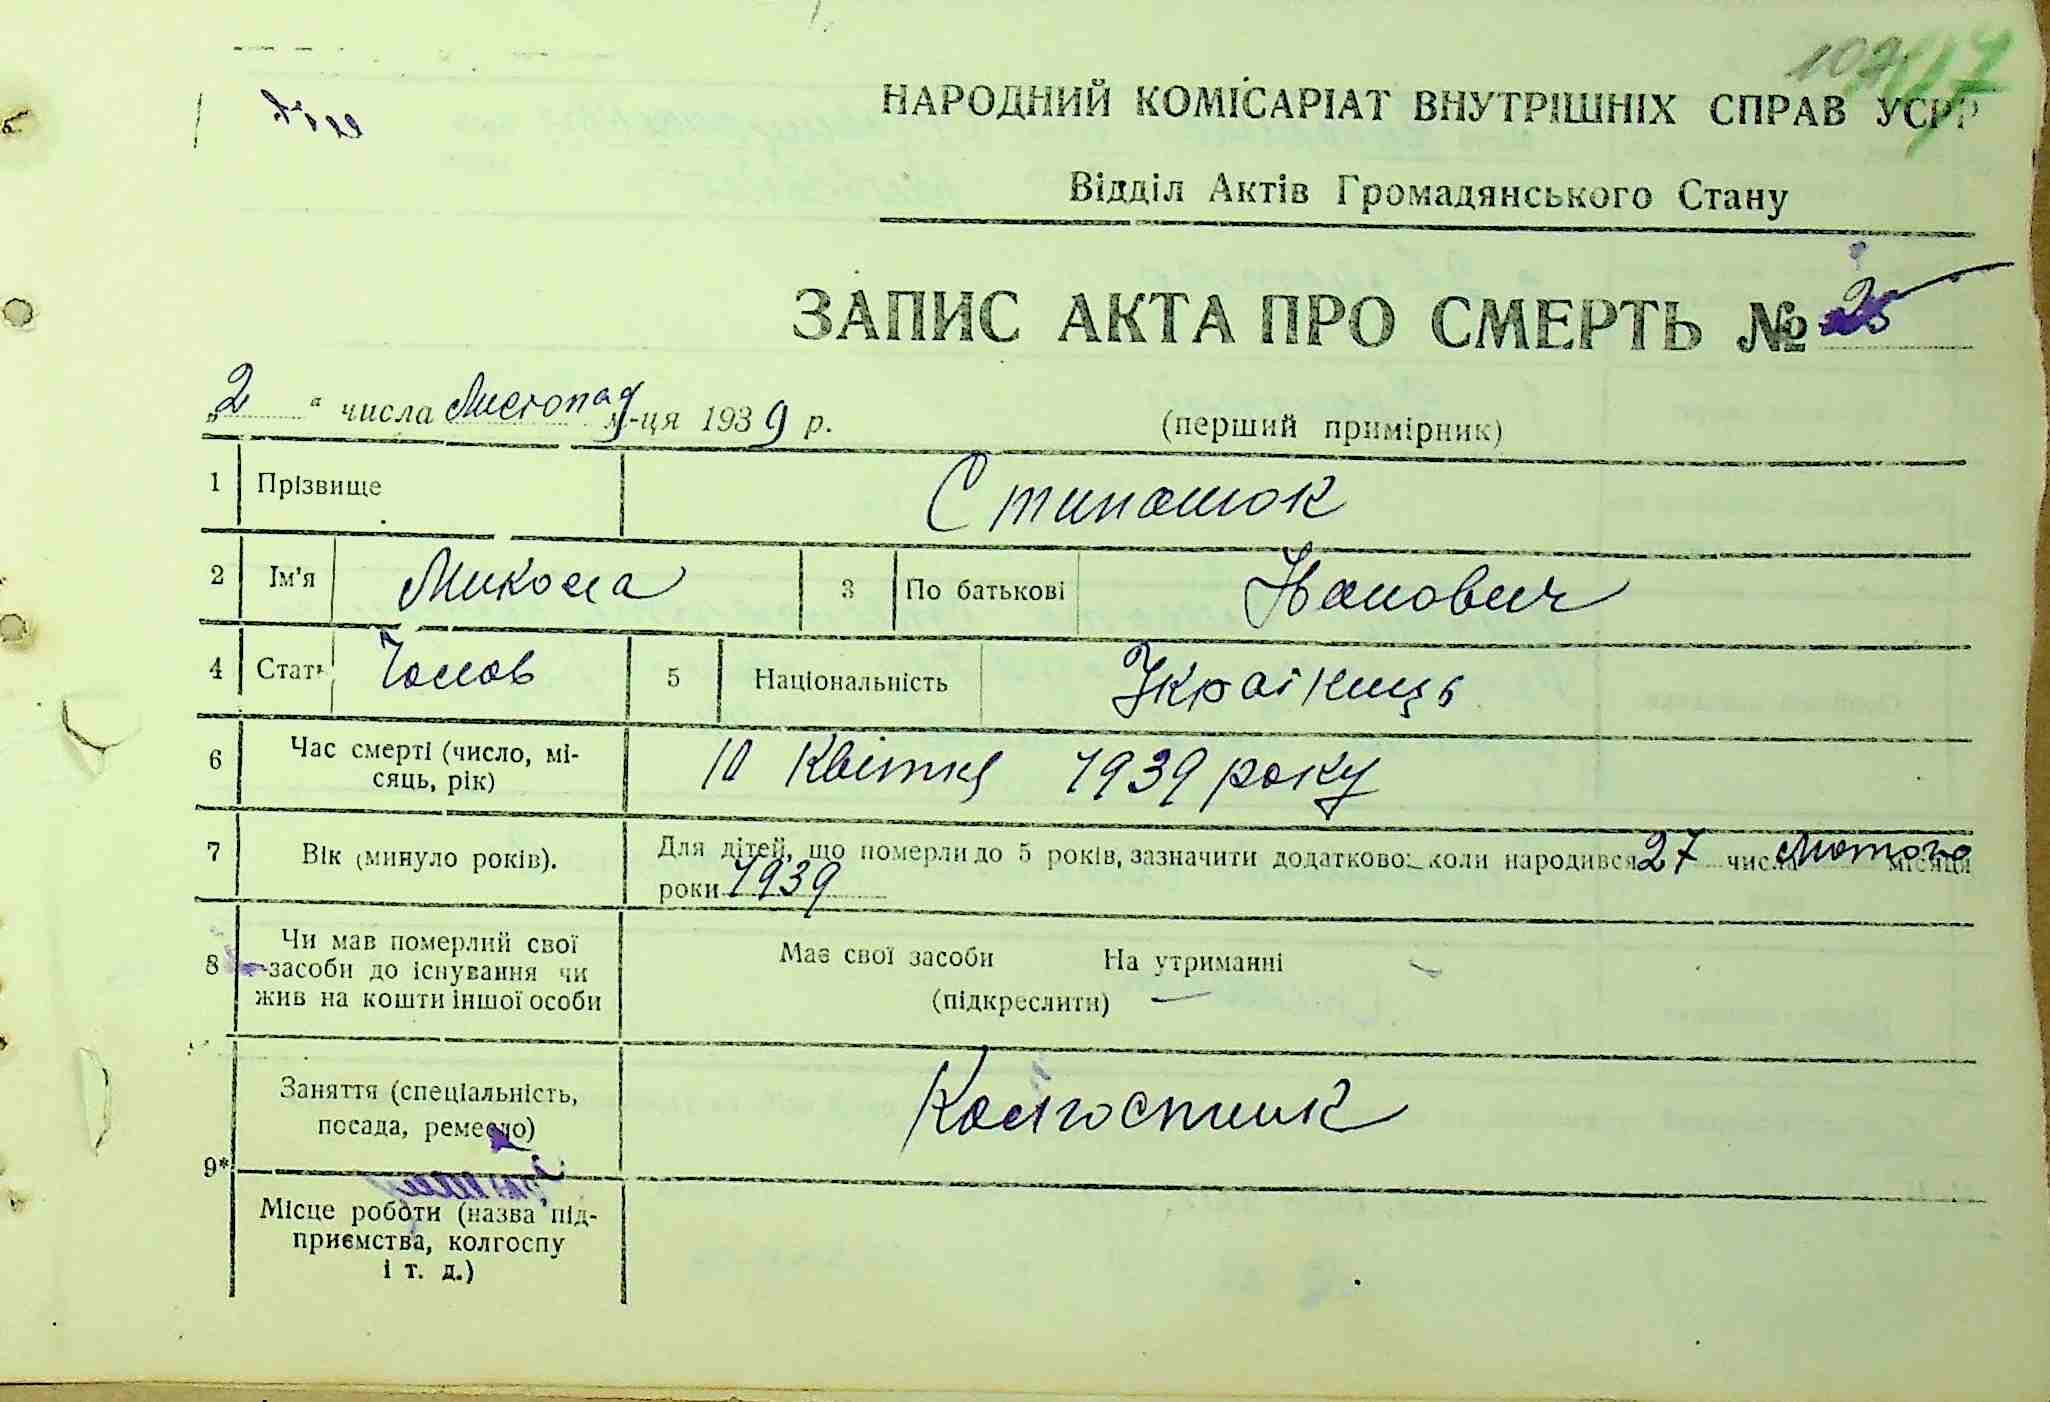 НАРОДНИЙ КОМІСАРІАТ ВНУТРІШНІХ СПРАВ УСРР
Відділ Актів Громадянського Стану
ЗАПИС АКТА ПРО СМЕРТЬ № 25
„2“ числа Листопад м-ця 1939 р. (перший примірник)
1 Прізвище Стипанюк
2 Ім'я Микола 3 По батькові Іванович
4 Стать Чолов 5 Національність Українець
6 Час смерті (число, мі-
сяць, рік) 10 Квітня 1939 року
7 Вік (минуло років). Для дітей, що померли до 5 років, зазначити додатково: коли народився 27 числа Лютого місяця
роки 1939
8 Чи мав померлий свої
засоби до існування чи
жив на кошти іншої особи
Має свої засоби На утриманні
(підкреслити)
9* Заняття (спеціальність,
посада, ремесло) Колгоспник
Місце роботи (назва під-
приємства, колгоспу
і т. д.)